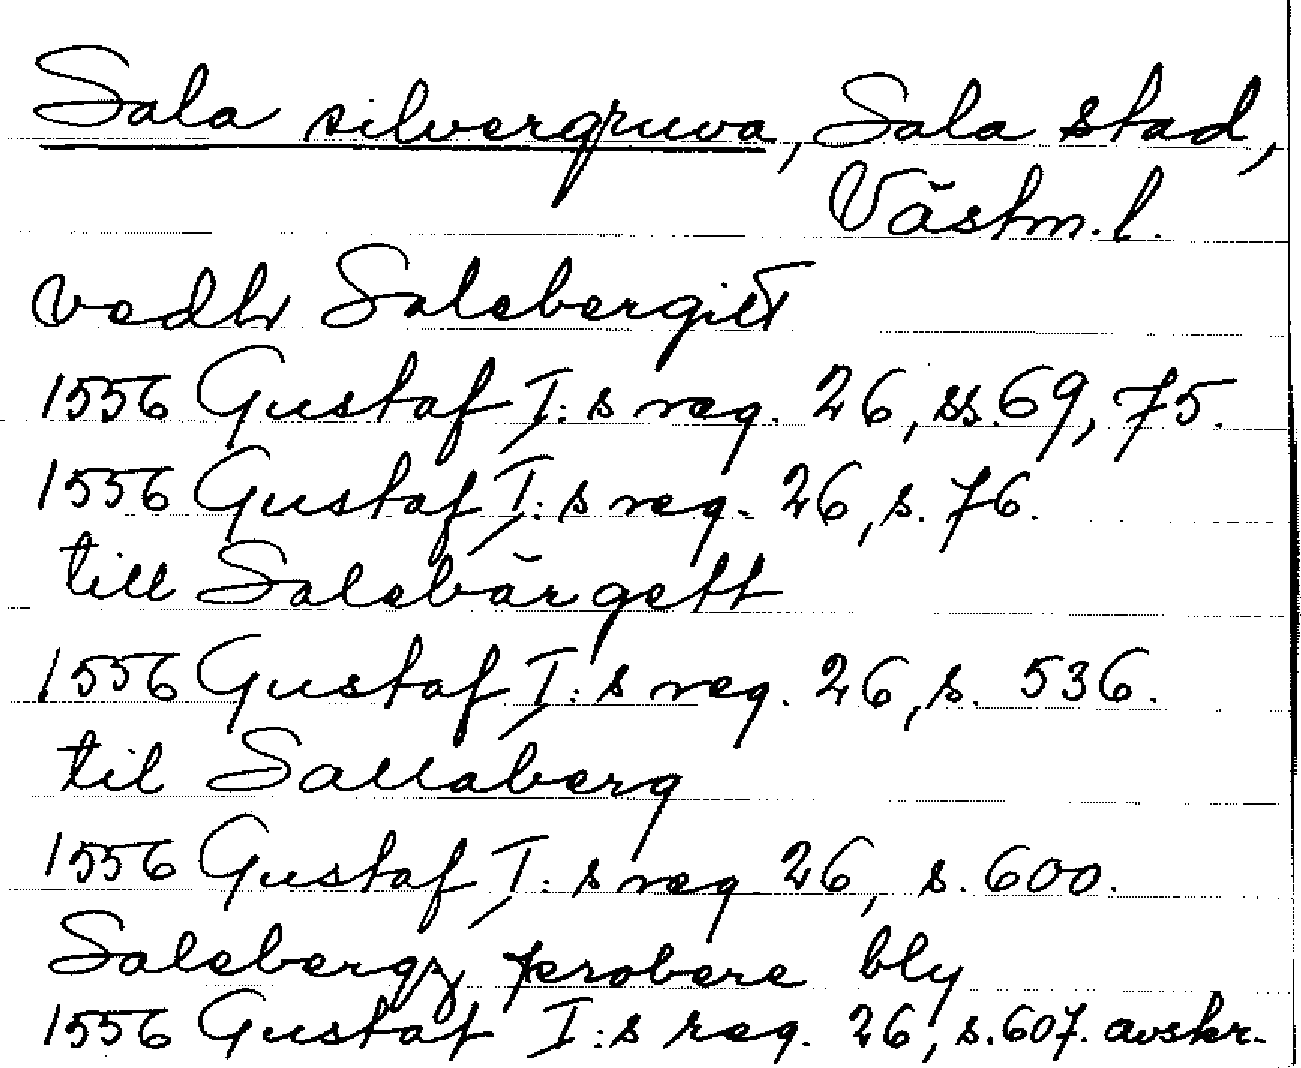 Sala silvergruva, Sala stad,
Västm. l.
vedh Salebergitt
1556 Gustaf I:s reg. 26, ss. 69, 75.
1556 Gustaf I:s reg. 26, s. 76.
till Salebärgett
1556 Gustaf I:s reg. 26, s. 536.
til Sallaberg
1556 Gustaf I:s reg 26, s. 600.
Salebergz probere bly
1556 Gustaf I:s reg. 26, s. 607. avskr.